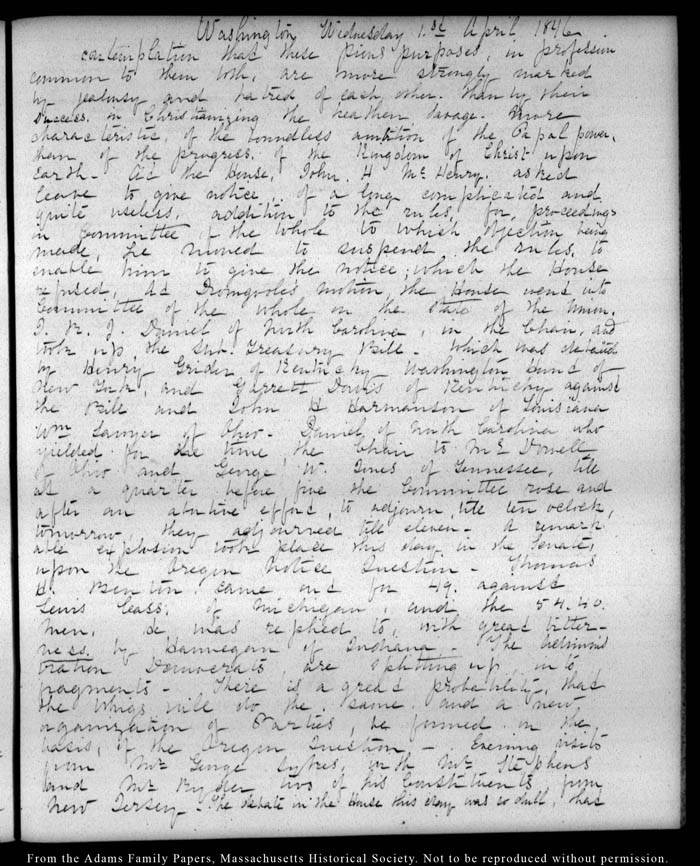 Washington Wednesday 1. st April 1846.
contemplation that these pious purposes, in profession
common to them both, are more strongly marked
by jealousy and hatred of each other. than by their
success. in Christianizing the heathen savage. More
characteristic, of the boundless ambition of the Papal power,
than, of the progress, of the Kingdom of Christ upon
earth - At the House, John. H Mc Henry. asked
leave to give notice. of a long complicated and
quite useless, addition to the rules, for, proceedings
in Committee of the whole to which objection being
made, he moved to suspend the rules, to
enable him to give the notice, which the House
refused, At Dromgoole's motion the House went into
Committee of the whole on the state of the Union.
J. R. J. Daniel of North Carolina, in the Chair, and
took up the Sub. Treasury Bill - which was debated
by Henry Grider of Kentucky Washington Hunt of
New York, and Garrett Davis of Kentucky against
the Bill and John H Harmanson of Louisiana
Wm Sawyer of Ohio - Daniel of North Carolina who
yielded for the time the Chair to Mc Dowell
of Ohio and George W. Jones of Tennessee, till
at a quarter before five the Committee rose and
after an abortive effort, to adjourn till ten o'clock,
tomorrow, they adjourned till eleven - A remark
able explosion took place this day in the Senate,
upon the Oregon Notice Question - Thomas
H. Benton. came out for 49. against
Lewis Cass, of Michigan, and the 54.40.
men, he was replied to, with great bitter-
ness. by Hannegan of Indiana - The
Democrats are splitting up into
fragments - There is a great probability, that
the Whigs will do the same. and a new
organization of Parties, be formed on the,
basis, of the Oregon Question -. Evening visits
from Mr George Sykes, with Mr Stephens
and Mr Ryder two of his Constituents from
New Jersey - The debate in the House this day was so dull, that
From the Adams Family Papers, Massachusetts Historical Society. Not to be reproduced without permission.